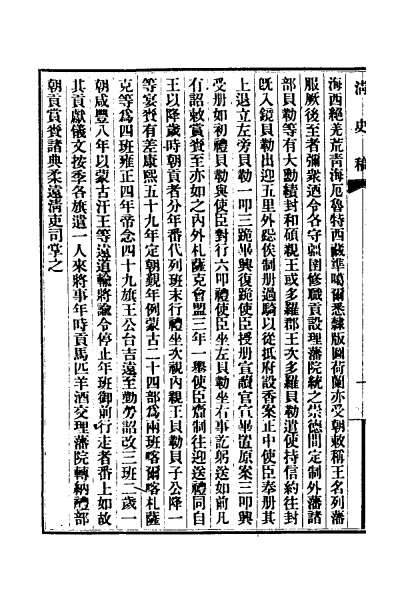 清史稿
海西絕羌荒青海厄魯特西藏準噶爾悉隸版圖荷蘭亦受朝敕稱王名列藩
服厥後至者彌衆迺令各守疆圉修職貢設理藩院統之崇德間定制外藩諸
部貝勒等有大勳績封和碩親王或多羅郡王次多羅貝勒遣使持信約往封
旣入鏡貝勒出迎五里外跽俟制册過騎以從抵府設香案正中使臣奉册其
上退立左旁貝勒一叩三跪畢興復跪使臣授册宣讀官宣畢置原案三叩興
受册如初禮貝勒與使臣對行六叩禮使臣坐左貝勒坐右事訖躬送如前凡
有詔敕賞賚至亦如之內外札薩克會盟三年一舉使臣齎制往迎送禮同自
王以降歲時朝貢者分年番代列班末行禮坐次視內親王貝勒貝子公降一
等宴賚有差康熙五十九年定朝覲年例蒙古二十四部爲兩班喀爾喀札薩
克等爲四班雍正四年帝念四十九旗王公台吉遠至勤勞詔改三班三歲一
朝咸豐八年以蒙古汗王等遠道輸將諭令停止年班御前行走者番上如故
其貢獻儀文按季各旗遣一人來將事年時貢馬匹羊酒交理藩院轉納禮部
朝貢賞賚諸典柔遠淸吏司掌之